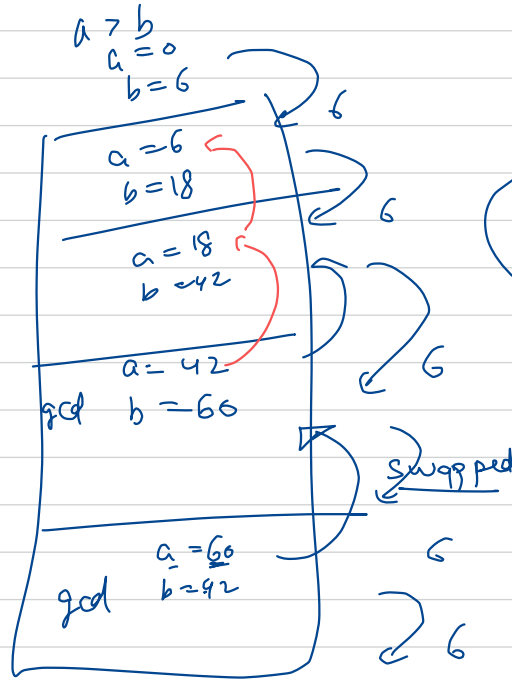 a > b
a = 0
b = 6
6
a = 6
b = 18
6
a = 18
b = 42
6
a = 42
gcd b = 60
swapped
a = 60
6
gcd b = 42
6